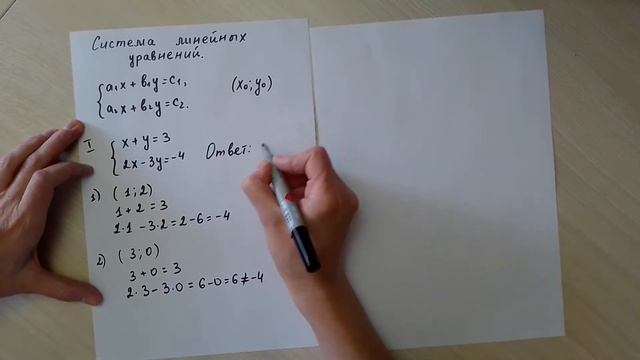 Система линейных
уравнений.
a₁x + b₁y = c₁,
a₂x + b₂y = c₂.
(x₀; y₀)
I
x + y = 3
2x - 3y = -4
Ответ:
1) (1; 2)
1 + 2 = 3
2·1 - 3·2 = 2 - 6 = -4
2) (3; 0)
3 + 0 = 3
2·3 - 3·0 = 6 - 0 = 6 ≠ -4